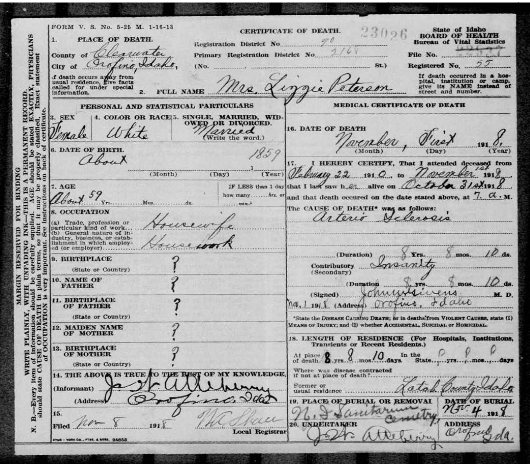 FORM V. S. No. 5-25 M. 1-14-13
CERTIFICATE OF DEATH
23096
State of Idaho
BOARD OF HEALTH
Bureau of Vital Statistics
1. PLACE OF DEATH.
County of Clearwater
City of Orofino, Idaho,
Registration District No.
Primary Registration District No. 2168
(No. St.)
File No.
Registered No. 55
If death occurs away from usual residence, give facts called for under special information.
2. FULL NAME Mrs. Lizzie Peterson
If death occurred in a hospital, institution or camp, give its NAME instead of street and number.
PERSONAL AND STATISTICAL PARTICULARS
3. SEX
Female
4. COLOR OR RACE
White
5. SINGLE, MARRIED, WIDOWED OR DIVORCED.
Married
(Write the word.)
6. DATE OF BIRTH
About 1859
(Month) (Day) (Year)
7. AGE
About 59 Yrs. Mos. ds.
IF LESS than 1 day
how many hrs. or min.?
8. OCCUPATION
(a) Trade, profession or particular kind of work Housewife
(b) General nature of industry, business, or establishment in which employed (or employer) Housework
9. BIRTHPLACE ?
(State or Country)
10. NAME OF FATHER ?
11. BIRTHPLACE OF FATHER ?
(State or Country)
12. MAIDEN NAME OF MOTHER ?
13. BIRTHPLACE OF MOTHER ?
(State or Country)
14. THE ABOVE IS TRUE TO THE BEST OF MY KNOWLEDGE.
(Informant) J. W. Atteberry
(Address) Orofino, Ida
15.
Filed Nov 8 1918
Local Registrar
MEDICAL CERTIFICATE OF DEATH
16. DATE OF DEATH
November, First 1918.
(Month) (Day) (Year)
17. I HEREBY CERTIFY, That I attended deceased from
February 22 1910 to November 1st 1918
that I last saw her alive on October 31st 1918
and that death occurred on the date stated above, at 7. a. M.
The CAUSE OF DEATH* was as follows:
Arterio Sclerosis
(Duration) 8 Yrs. 8 mos. 10 ds
Contributory Insanity
(Secondary)
(Duration) 8 yrs. 8 mos. 10 ds.
(Signed) John W Givens M. D.
Nov. 1 1918 (Address) Orofino, Idaho
*State the DISEASE CAUSING DEATH, or in deaths from VIOLENT CAUSES, state (1) MEANS OF INJURY; and (2) whether ACCIDENTAL, SUICIDAL or HOMICIDAL.
18. LENGTH OF RESIDENCE (For Hospitals, Institutions, Transients or Recent Residents.)
At place of death 8 yrs. 8 mos. 10 days.
In the State 0 yrs. 0 mos. 0 days
Where was disease contracted if not at place of death?
Former or usual residence Latah County Idaho
19. PLACE OF BURIAL OR REMOVAL
N. I Sanitarium Cemetry
DATE OF BURIAL
Nov 4 1918
20. UNDERTAKER
J. W. Atteberry
ADDRESS
Orofino Ida.
MARGIN RESERVED FOR BINDING
WRITE PLAINLY, WITH UNFADING INK—THIS IS A PERMANENT RECORD.
N. B.—Every item of information should be carefully supplied. AGE should be stated EXACTLY. PHYSICIANS should state CAUSE OF DEATH in plain terms, so that it may be properly classified. Exact statement of OCCUPATION is very important. See instructions on back of certificate.